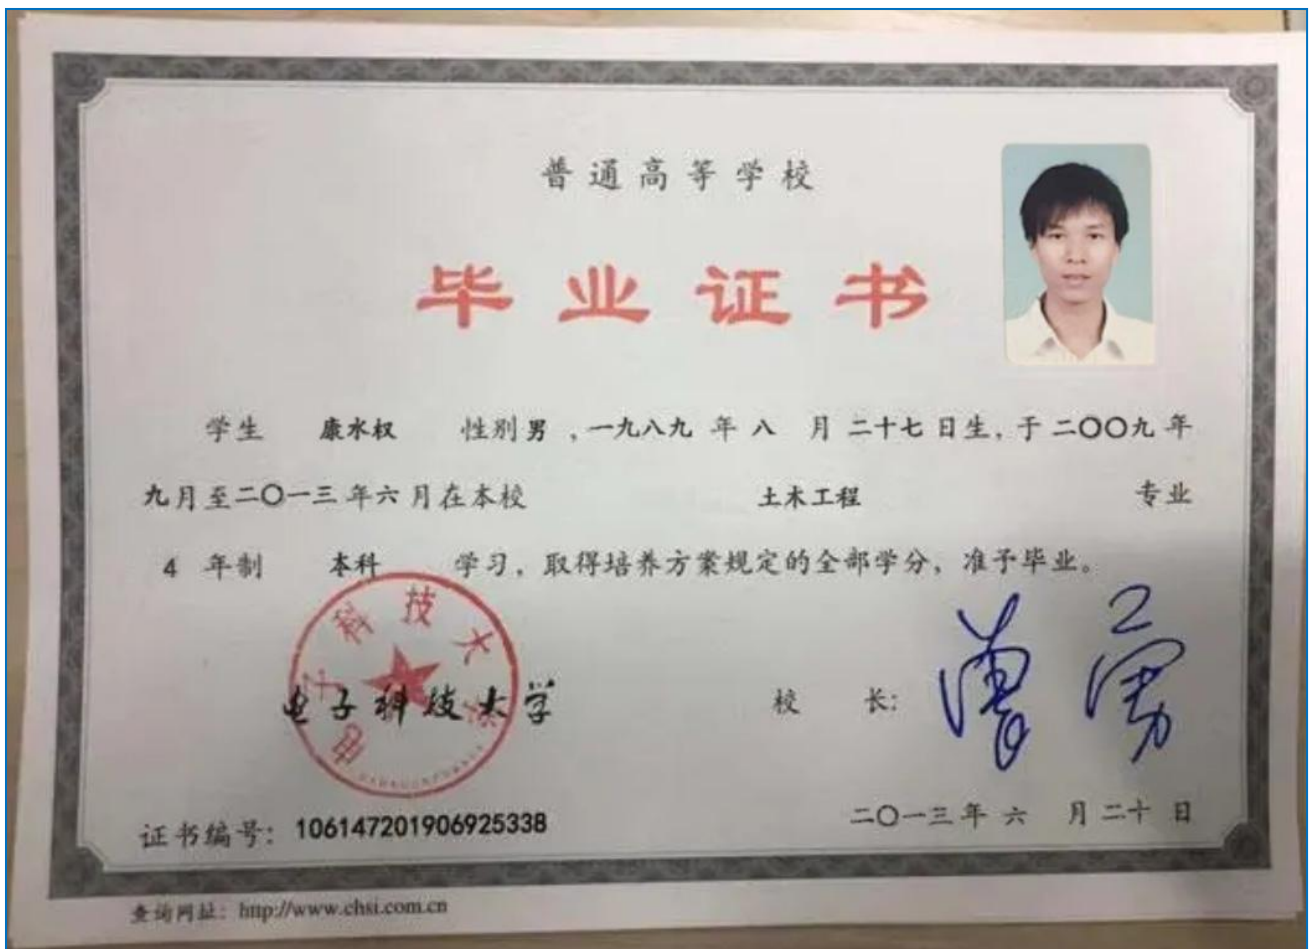 普通高等学校
毕业证书
学生 康水权 性别 男 ,一九八九 年 八 月 二十七 日生, 于 二〇〇九 年
九 月至 二〇一三 年 六 月在本校 土木工程 专业
4 年制 本科 学习, 取得培养方案规定的全部学分, 准予毕业。
电子科技大学
电子科技大学
校 长: 曾勇
二〇一三 年 六 月 二十 日
证书编号: 106147201906925338
查询网址: http://www.chsi.com.cn